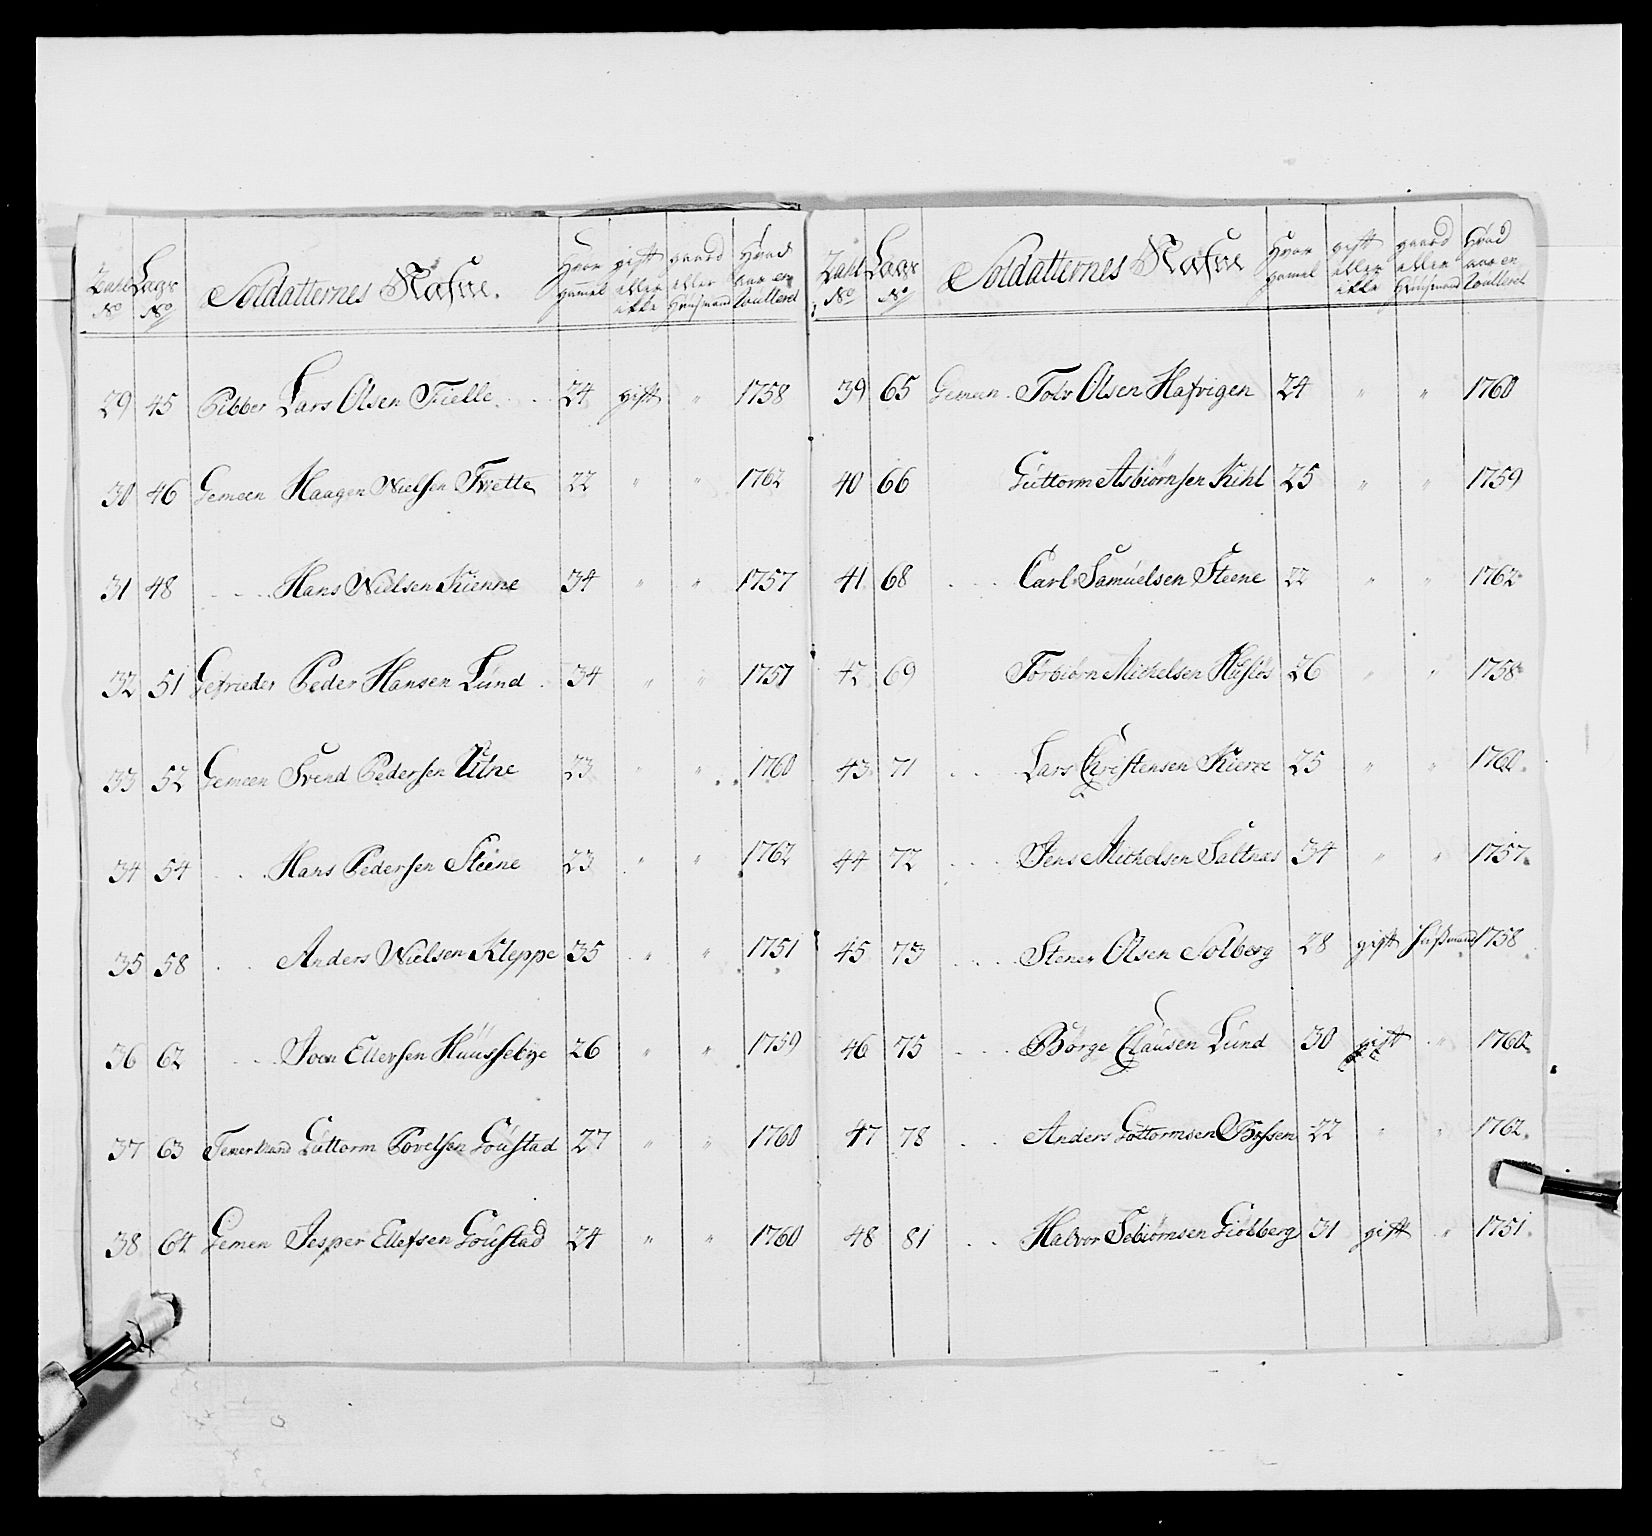 Zahl No Lags No Soldatternes Nafne. Hvor gammel gift eller ikke gaard eller Huusmand Hvad aar en
29 45 Pibber Lars Olsen Fielle 24 gift " 1758
30 46 Gemeen Haagen Nielsen Tvette 22 " " 1762
31 48 Hans Nielsen Kienne 34 " " 1757
32 51 Gefrieder Peder Hansen Lund 34 " " 1757
33 52 Gemeen Svend Pedersen Utne 23 " " 1760
34 54 Hans Pedersen Steene 23 " " 1762
35 58 Anders Nielsen Kleppe 35 " " 1751
36 62 Joen Ellersen Huussebye 26 " " 1759
37 63 Guttorm Povelsen Goustad 27 " " 1760
38 64 Gemen Jesper Ellefsen Goustad 24 " " 1760
Zahl No Lags No Soldatternes Nafne Hvor gammel gift eller ikke gaard eller Huusmand Hvad aar en
39 65 Gemeen Tolv Olsen Hafvigen 24 " " 1760
40 66 Guttorm Asbiørnsen Kihl 25 " " 1759
41 68 Carl Samuelsen Steene 22 " " 1762
42 69 Torbiørn Mickelsen 26 " " 1758
43 71 Lars Christensen Kierre 25 " " 1760
44 72 Jens Mickelsen Saltnæs 34 " " 1757
45 73 Stener Olsen Solberg 28 gift Husmand 1758
46 75 Børge Clausen Lund 30 gift " 1760
47 78 Anders Gottormsen 22 " " 1762
48 81 Halvor 31 gift " 1751